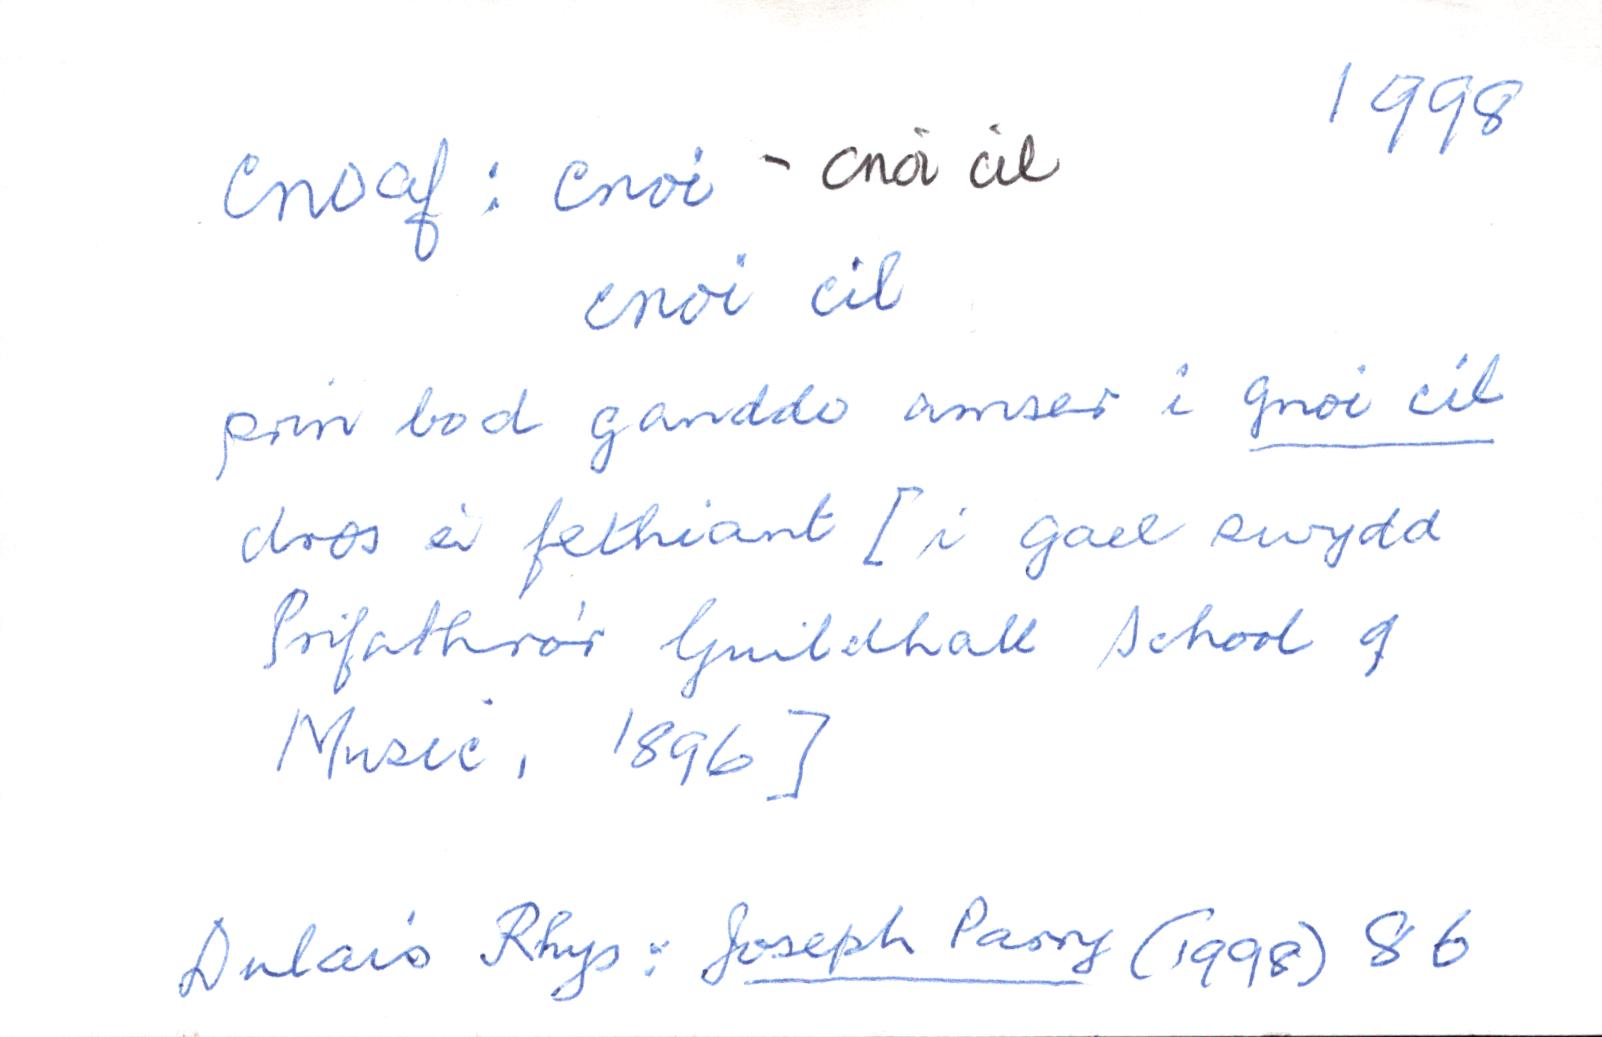 1998
cnoaf : cnoi - cnoi cil
cnoi cil
prin bod ganddo amser i gnoi cil
dros ei fethiant [i gael swydd
Prifathro'r Guildhall School of
Music, 1896]
Dulais Rhys: Joseph Parry (1998) 86